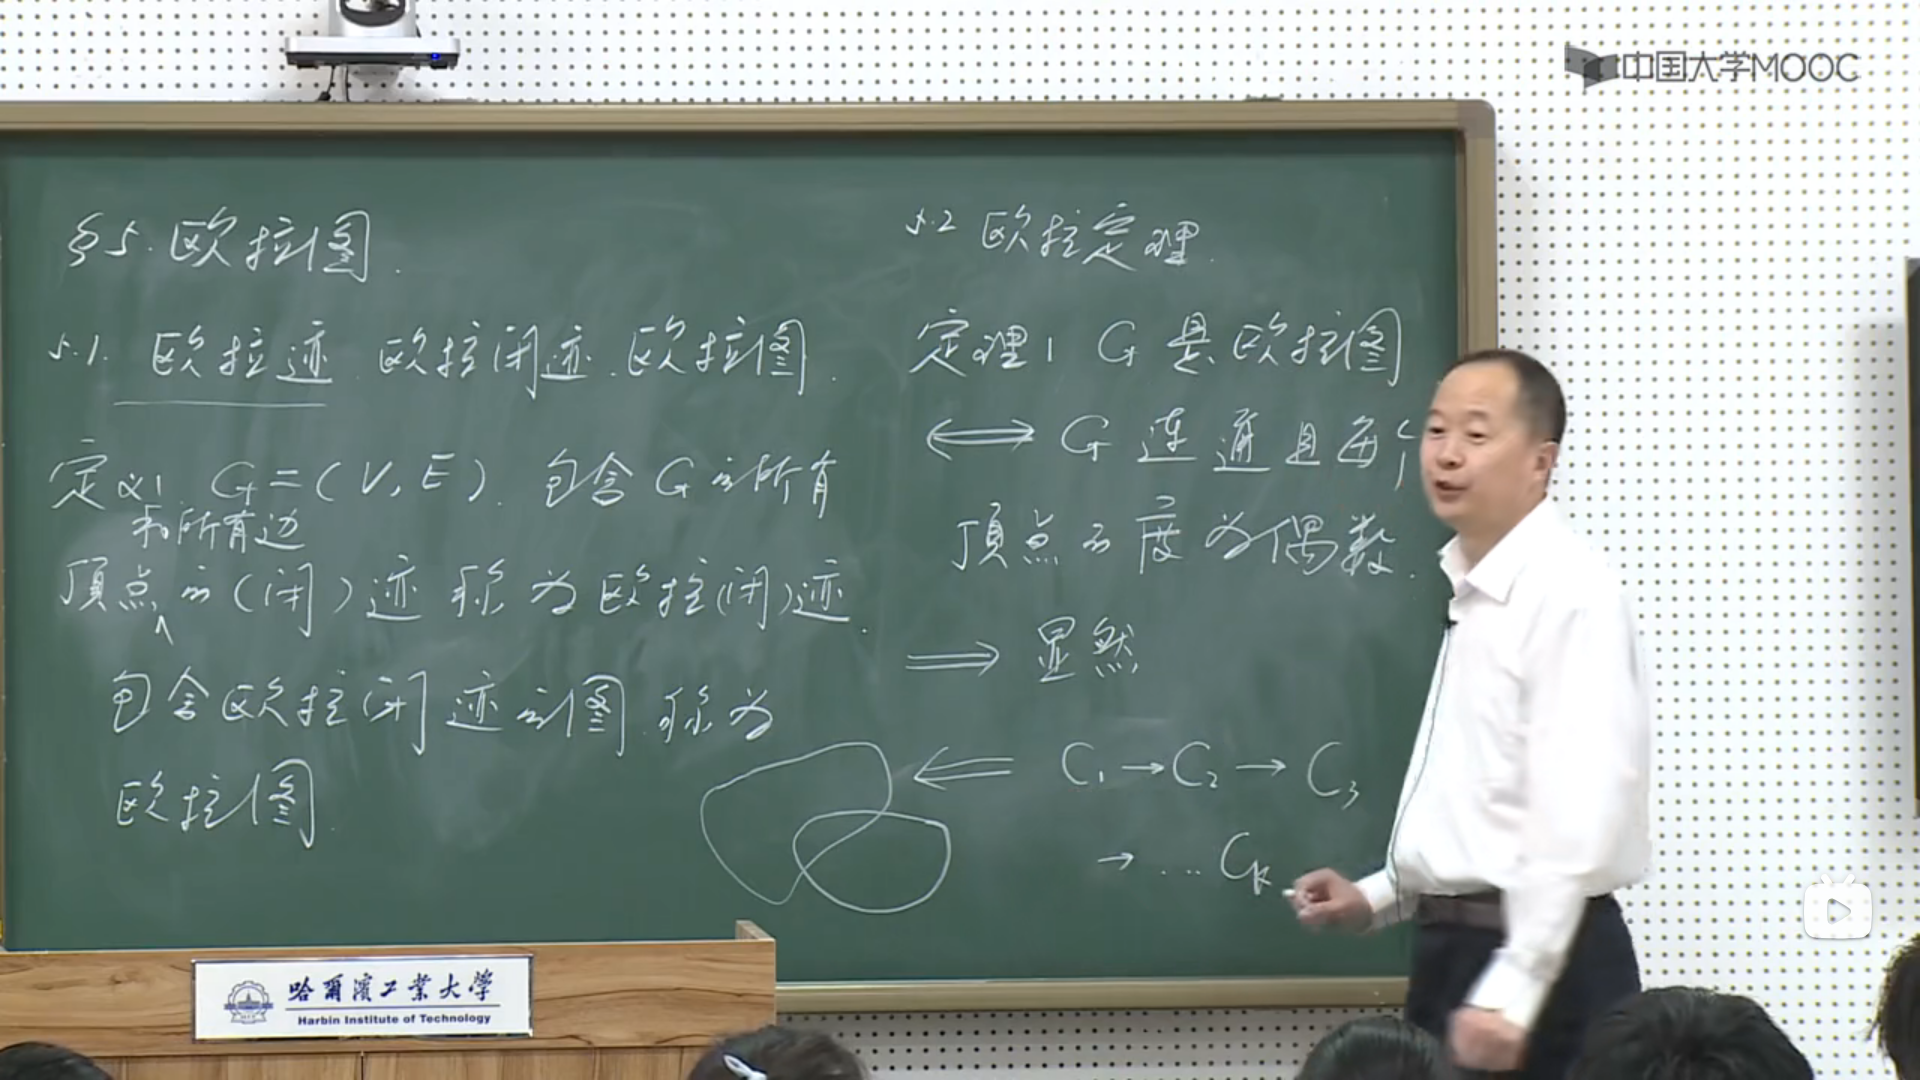 中国大学MOOC
§5. 欧拉图.
5.1. 欧拉迹. 欧拉闭迹. 欧拉图.
定义1. G=(V,E). 包含G的所有
和所有边
顶点的(闭)迹称为欧拉(闭)迹.
包含欧拉闭迹的图称为
欧拉图.
5.2 欧拉定理.
定理1 G是欧拉图
⟺ G连通且每个
顶点的度为偶数.
⟹ 显然
⟸ C₁→C₂→C₃
→…Cₖ
哈爾濱工業大學
Harbin Institute of Technology